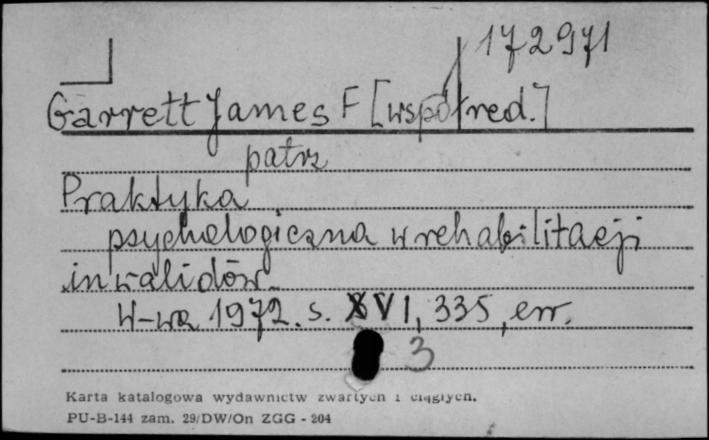 172971
Garrett James F [współred.]
patrz
Praktyka
psychologiczna w rehabilitacji
inwalidów.
W-wa 1972. s. XVI, 335, err.
3
Karta katalogowa wydawnictw zwartych i ciągłych.
PU-B-144 zam. 29/DW/On ZGG - 204